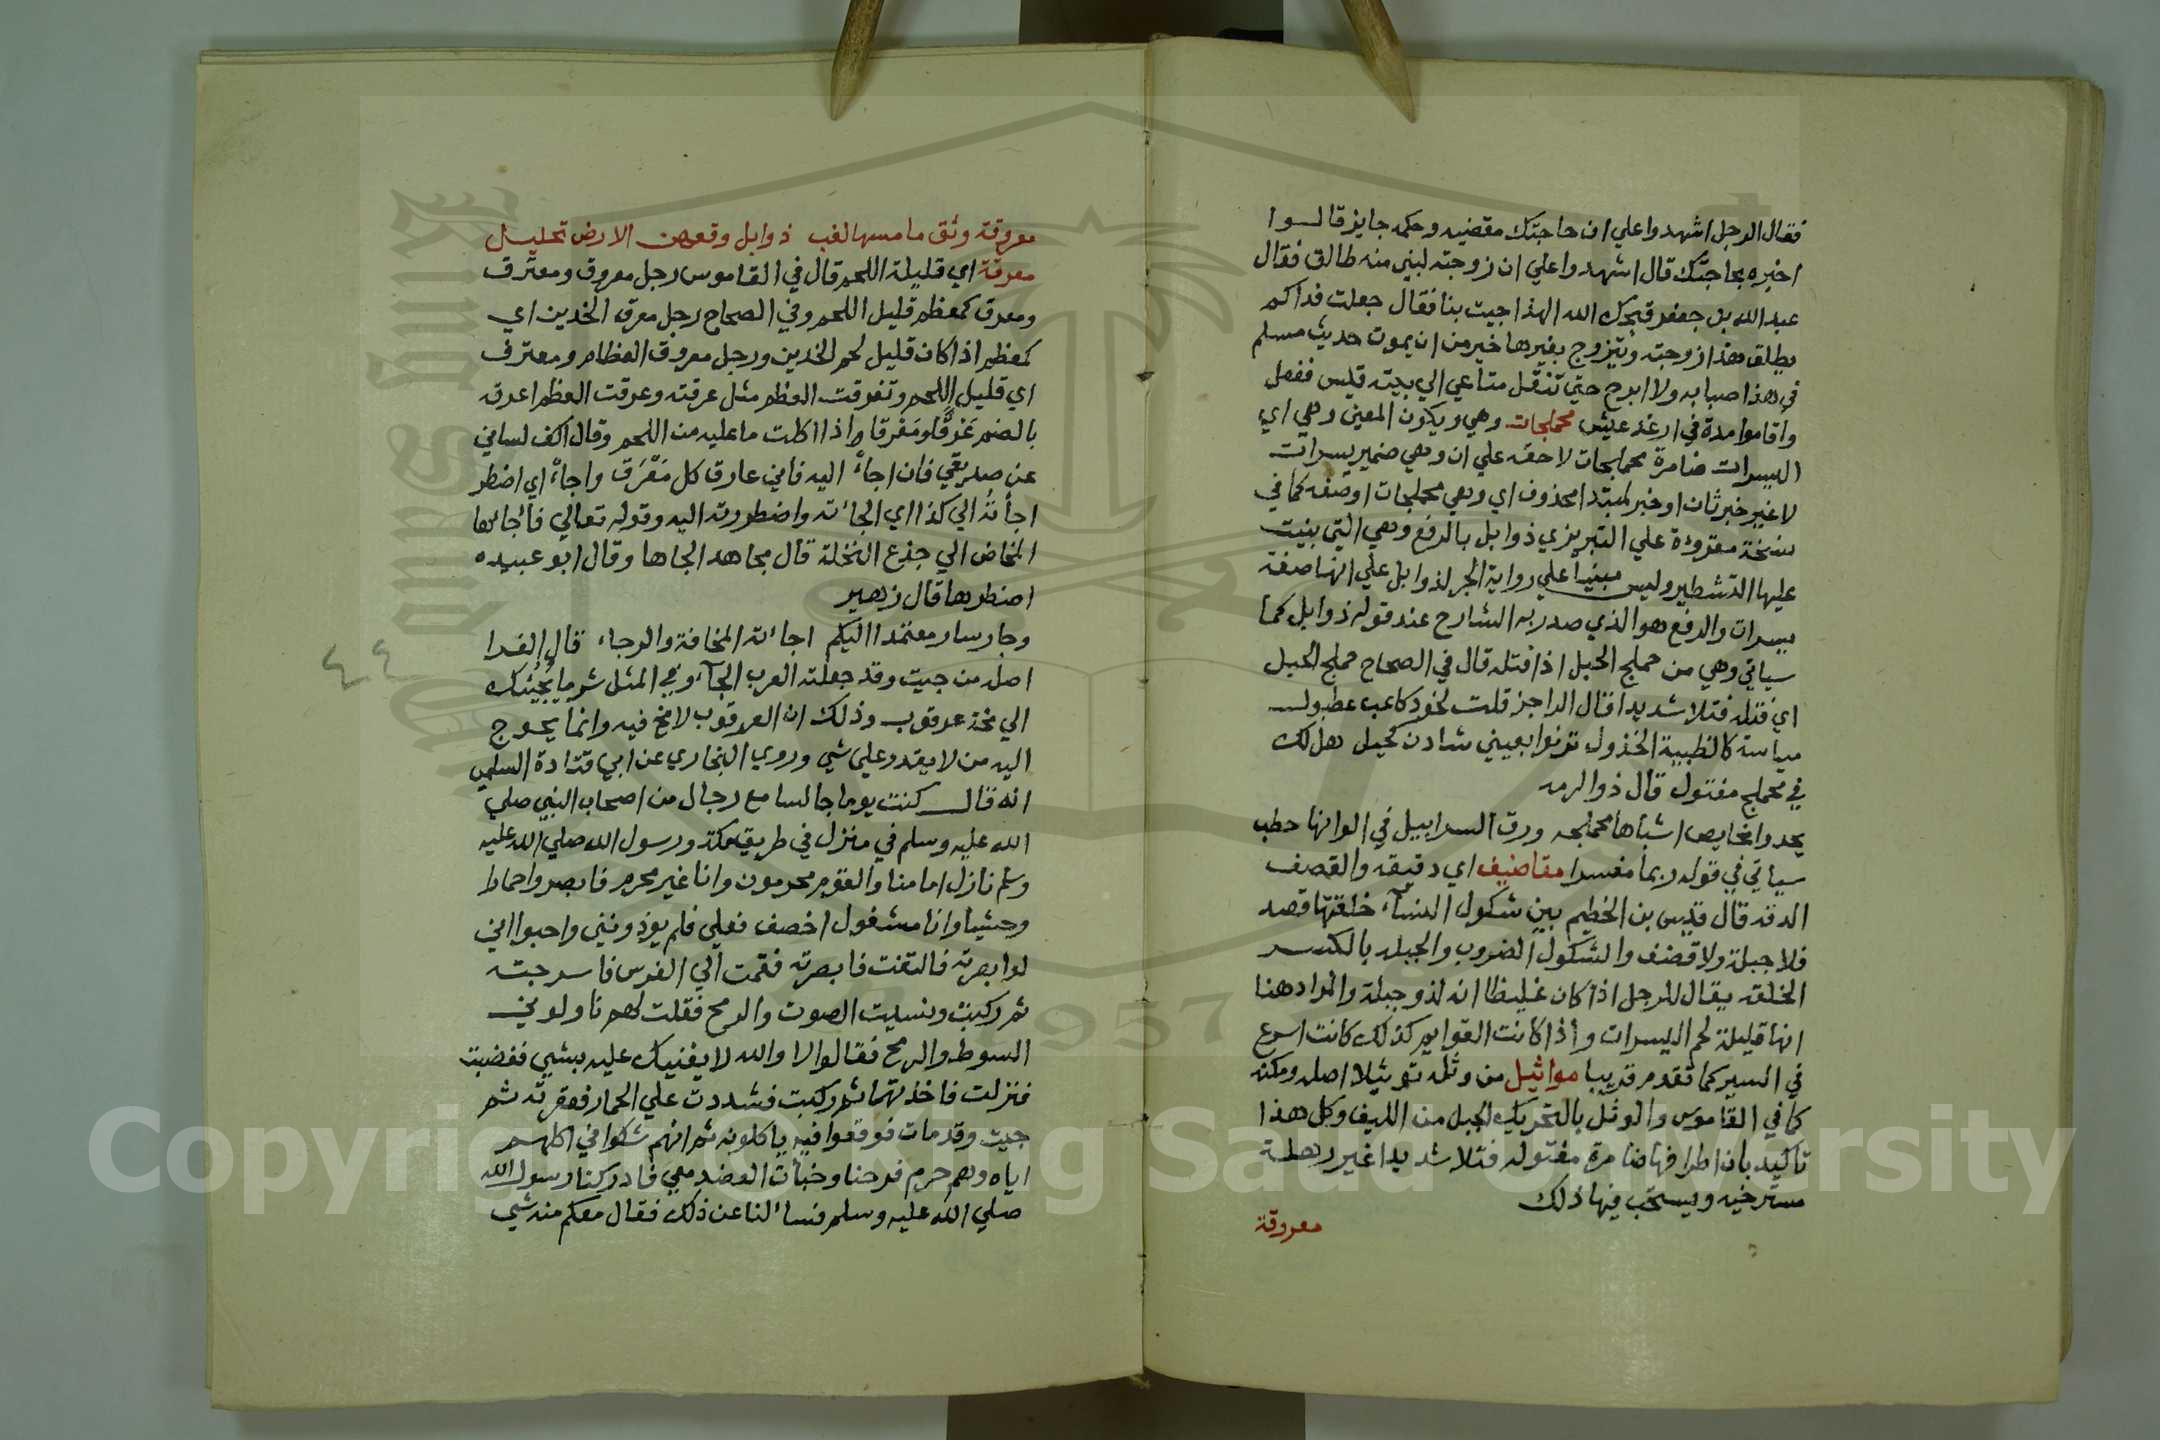 فقال الرجل اشهدوا علي ان حاجتك مقضيه وحكمه جايز قالوا
اخبره بحاجتك قال اشهدوا علي ان زوجته لبني منه طالق فقال
عبد الله بن جعفر قبحك الله الهذا جيت بنا فقال جعلت فداكم
يطلق هذا زوجته ويتزوج بغيرها خير من ان يموت حديث مسلم
في هذا صبابه ولا ابرح حتي تنقل متاعي الي بيته قليس ففعل
واقاموا مدة في ارغد عيش محملجات وهي ويكون المعني وهي اي
اليسرات ضامرة محملجات لاحقه علي ان وهي ضمير يسرات
لاغير خبر ثان او خبر لمبتدا محذوف اي وهي محملجات اوصفه كما في
نسخة مقروءة علي التبريزي ذوابل بالرفع وهي التي بنيت
عليها التشطير وليس مبنيا علي رواية الجر لذوابل علي انها صفة
يسرات والرفع هو الذي صدر به الشارح عند قوله ذوابل كما
سياتي وهي من حملج الحبل اذا فتله قال في الصحاح حملج الحبل
اي فتله فتلا شديدا قال الراجز قلت لخود كاعب عطبول
مياسة كالظبية الخذول ترنوا بعيني شادن كحيل هل لك
في محملج مفتول قال ذو الرمه
يحدوا نحايص اشباها محملجه ورق السرابيل في الوانها خطب
سياتي في قوله ربما مفسرا مقاضيف اي دقيقه والقصف
الدقه قال قيس بن الخطيم بين شكول النساء خلقتها قصد
فلا جبلة ولا قضف والشكول الضروب والجبله بالكسر
الخلقه يقال للرجل اذا كان غليظا انه لذو جبلة والمراد هنا
انها قليلة لحم اليسرات واذا كانت القوايم كذلك كانت اسرع
في السير كما تقدم قريبا مواثيل من وثله توثيلا اصله ومكنه
كما في القاموس والوثل بالتحريك الحبل من الليف وكل هذا
تاكيد بان اطرافها ضامرة مفتوله فتلا شديدا غير رهلة
مسترخيه ويستحب فيها ذلك
معروقة
معروقة وثق ما مسها لغب ذوابل وقعهن الارض تحليل
معرقة اي قليلة اللحم قال في القاموس رجل معروق ومعترق
ومعرق كمعظم قليل اللحم وفي الصحاح رجل معرق الخدين اي
كمعظم اذا كان قليل لحم الخدين ورجل معروق العظام ومعترق
اي قليل اللحم وتعرقت العظم مثل عرقته وعرقت العظم اعرقه
بالضم عَرْقًا ومَعْرقا واذا اكلت ما عليه من اللحم وقال اكف لساني
عن صديقي فان اجأ اليه فاني عارق كل مَعْرَق واجأ اي اضطر
اجأتُه الي كذا اي الجائه واضطررته اليه وقوله تعالي فاجاءها
المخاض الي جذع النخلة قال مجاهد الجاها وقال ابو عبيده
اضطرها قال زهير
وجار سار معتمدا اليكم اجاته المخافة والرجاء قال الفرا
اصله من جيت وقد جعلته العرب الجاء وفي المثل شر ما يُجِيئك
الي مخة عرقوب وذلك ان العرقوب لا مخ فيه وانما يحوج
اليه من لا يقدر علي شي وروي البخاري عن ابي قتادة السلمي
انه قال كنت يوما جالسا مع رجال من اصحاب النبي صلي
الله عليه وسلم في منزل في طريق مكة ورسول الله صلي الله عليه
وسلم نازل امامنا والقوم محرمون وانا غير محرم فابصروا حمارا
وحشيا وانا مشغول اخصف نعلي فلم يوذونني واحبوا اني
لو ابصرته فالتفت فابصرته فقمت الي الفرس فاسرجته
ثم ركبت ونسيت الصوت والرمح فقلت لهم ناولوني
السوط والرمح فقالوا لا والله لا يعنيك عليه بشيي فغضبت
فنزلت فاخذتهما ثم ركبت فشددت علي الحمار فعقرته ثم
جيت وقد مات فوقعوا فيه ياكلونه ثم انهم شكوا في اكلهم
اياه وهم حرم فرحنا وخبأت العضد معي فادركنا رسول الله
صلي الله عليه وسلم فسالنا عن ذلك فقال معكم منه شي
٤٤
Copyright © King Saud University
1957